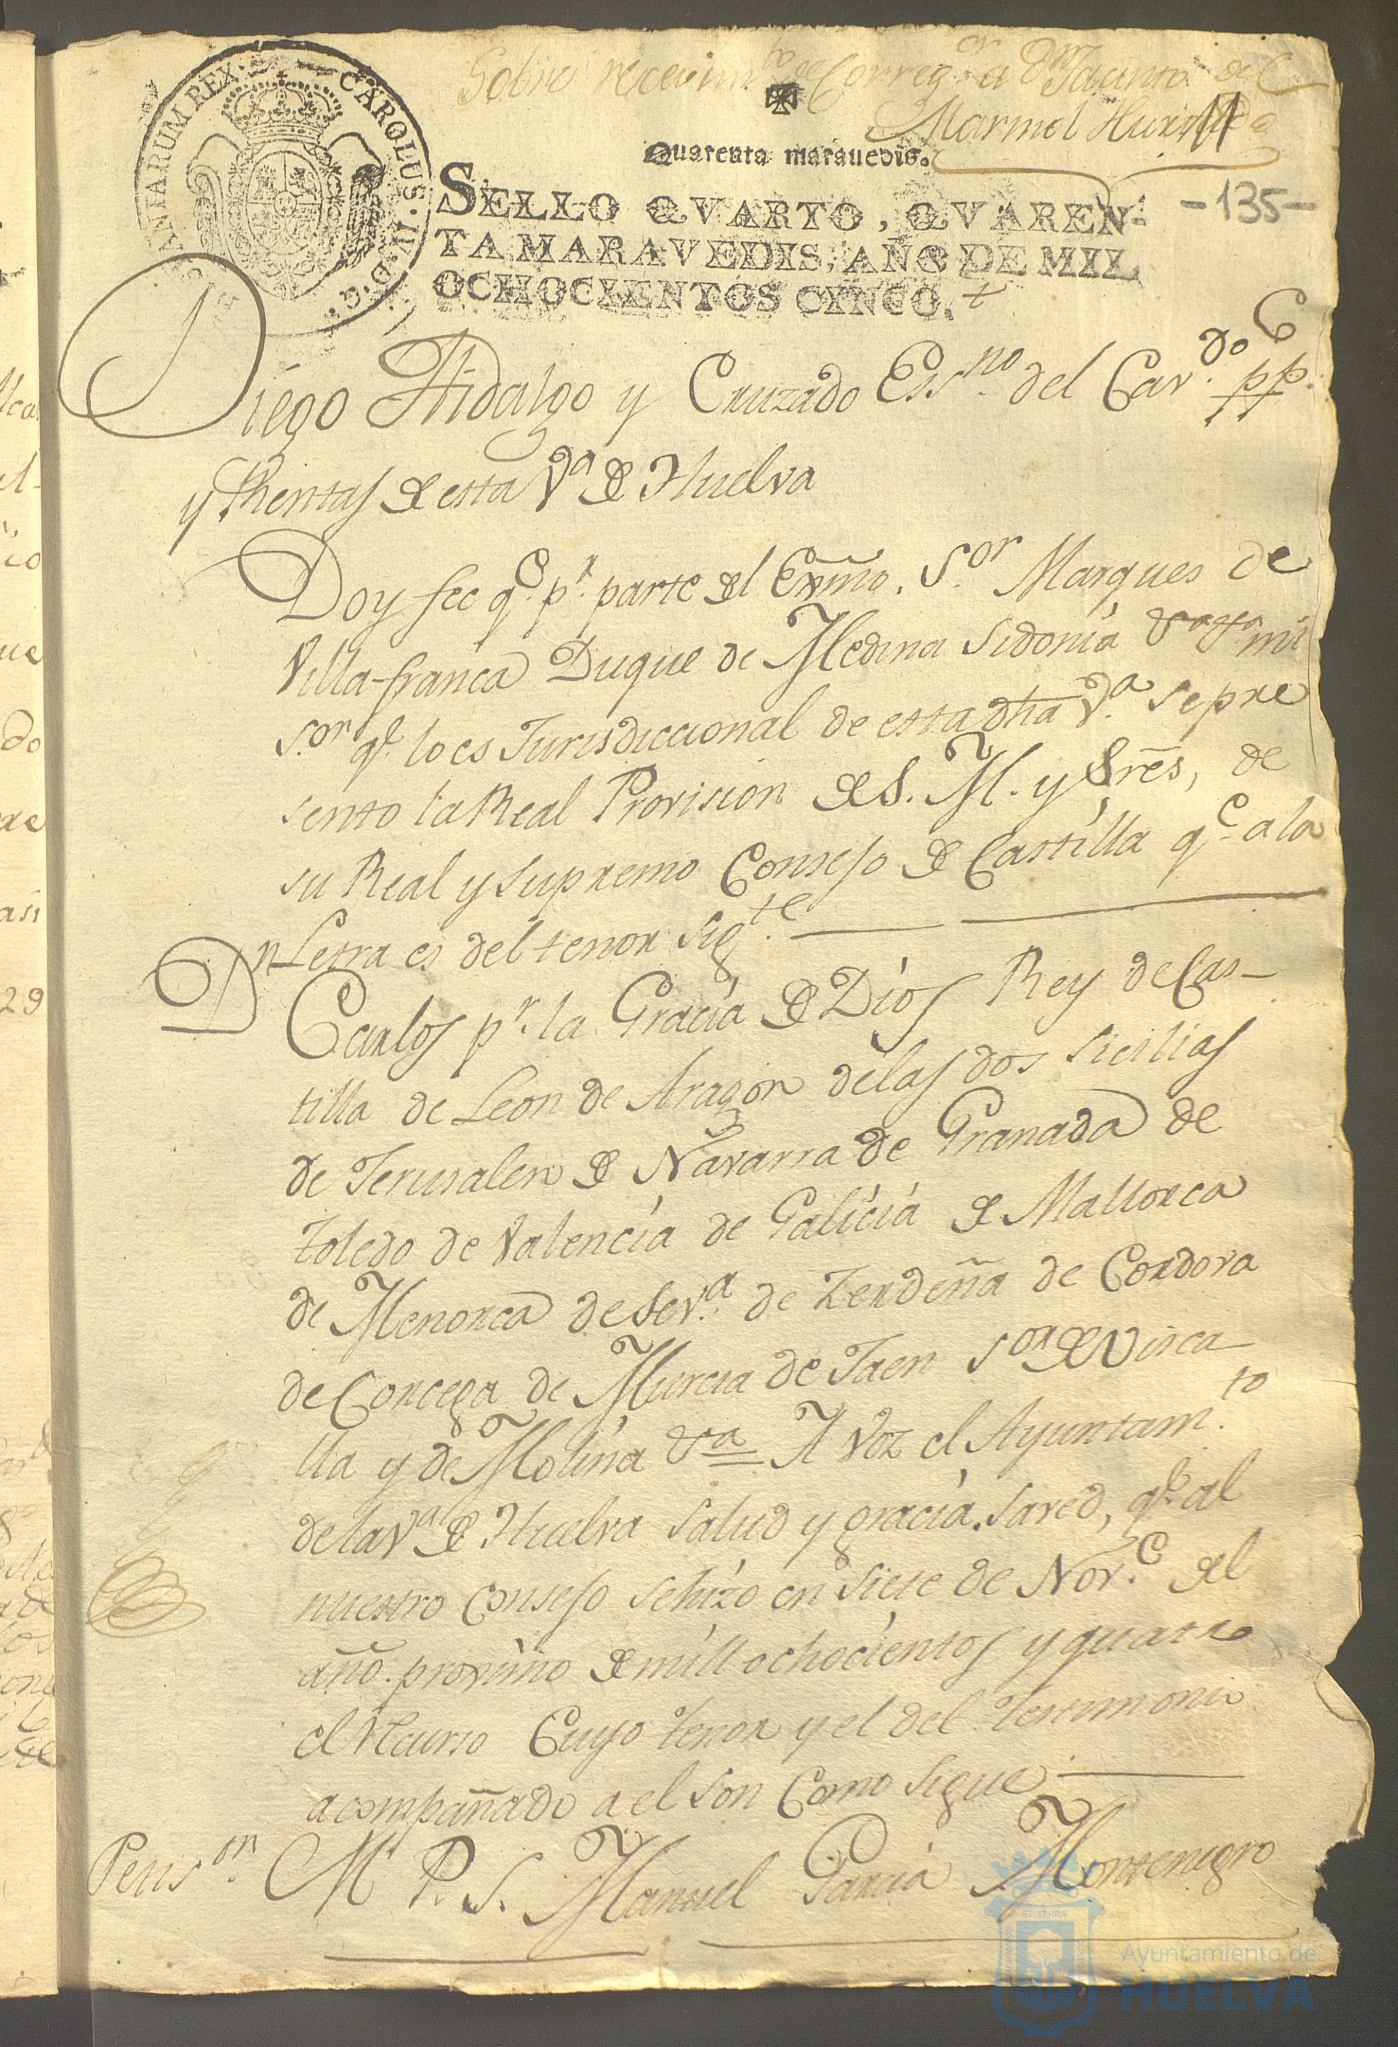 Sobre recevim.to de Correg.or a Dn Jacinto de
Marmol Hurtado
Quarenta maravedis.
11
-135-
SELLO QVARTO, QVAREN-
TA MARAVEDIS, AÑO DE MIL
OCHOCIENTOS CINCO.
CAROLUS IV D. G.
REX
Diego Hidalgo y Cruzado Essno del Cav.do pp.
y Rentas de esta V.a de Huelva
Doy fee q.e p.r parte del Exmo. S.or Marques de
Villa-franca Duque de Medina Sidonia mi
S.or q.e lo es Jurisdiccional de esta dha V.a se pre
sento la Real Provision de S. M. y Sres, de
su Real y Supremo Consejo de Castilla q.e a la
Letra es del tenor sig.te
Dn
Carlos p.r la Gracia de Dios Rey de Cas-
tilla de Leon de Aragon de las dos Sicilias
de Jerusalen de Navarra de Granada de
Toledo de Valencia de Galicia de Mallorca
de Menorca de Sev.a de Zerdeña de Cordova
de Corcega de Murcia de Jaen S.or de Visca-
lla y de Molina &a A Voz el Ayuntam.to
de la V.a de Huelva Salud y gracia. Saved, q.e al
nuestro Consejo se hizo en siete de Nov.e del
año proximo de mill ochocientos y quatro
el recurso Cuyo tenor y el del Testimonio
acompañado a el son Como sigue
Petis.on M. P. S. Manuel Garcia Montenegro
Ayuntamiento de
HUELVA